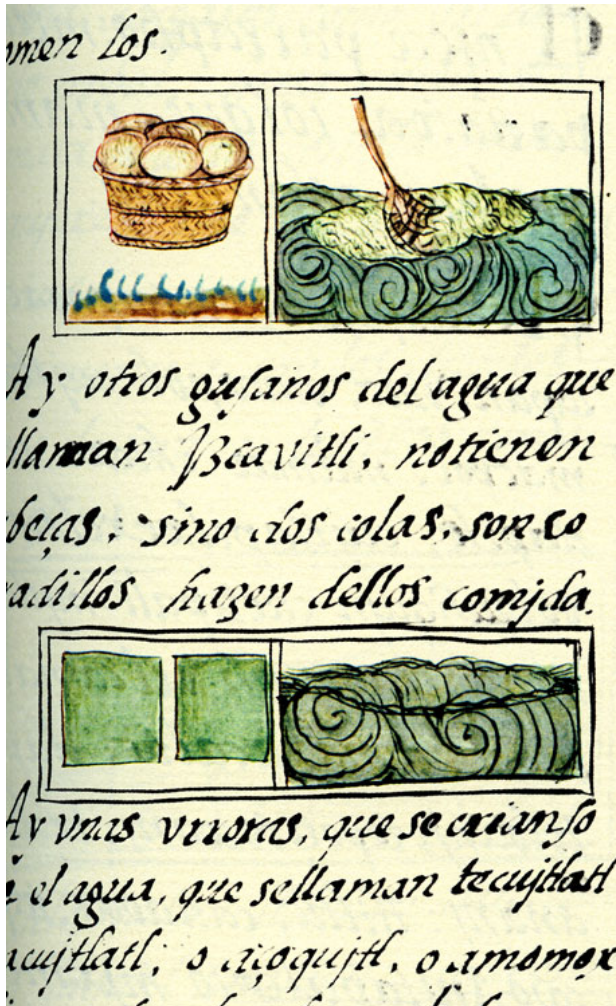 omen los.
Ay otros gusanos del agua que
llaman Yzcavitli, no tienen
beças, sino dos colas, son co
radillos hazen dellos comjda.
Ay vnas vrroras, que se crian so
el agua, que sellaman tecujtlatl
acujtlatl, o açoqujtl, o amomox